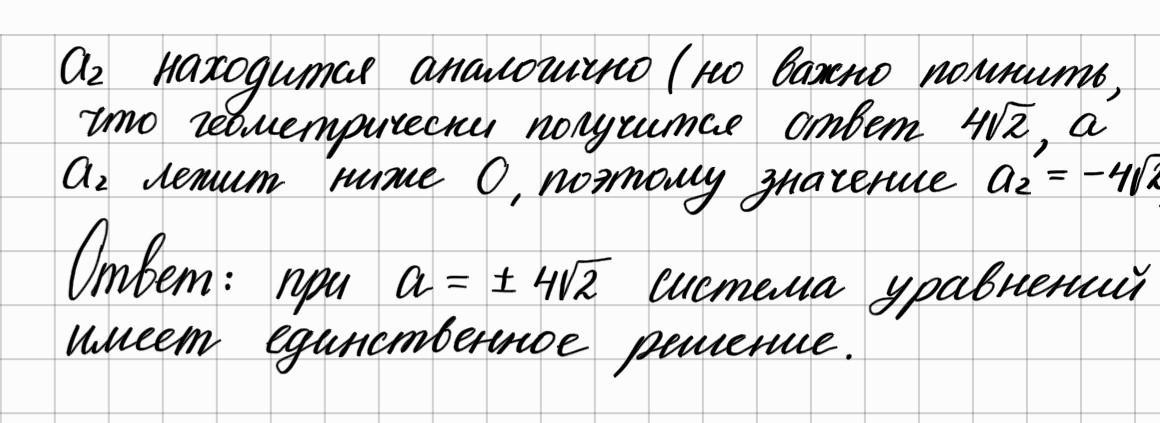 a₂ находится аналогично (но важно помнить,
что геометрически получится ответ 4√2, а
a₂ лежит ниже 0, поэтому значение a₂ = −4√2
Ответ: при a = ± 4√2 система уравнений
имеет единственное решение.